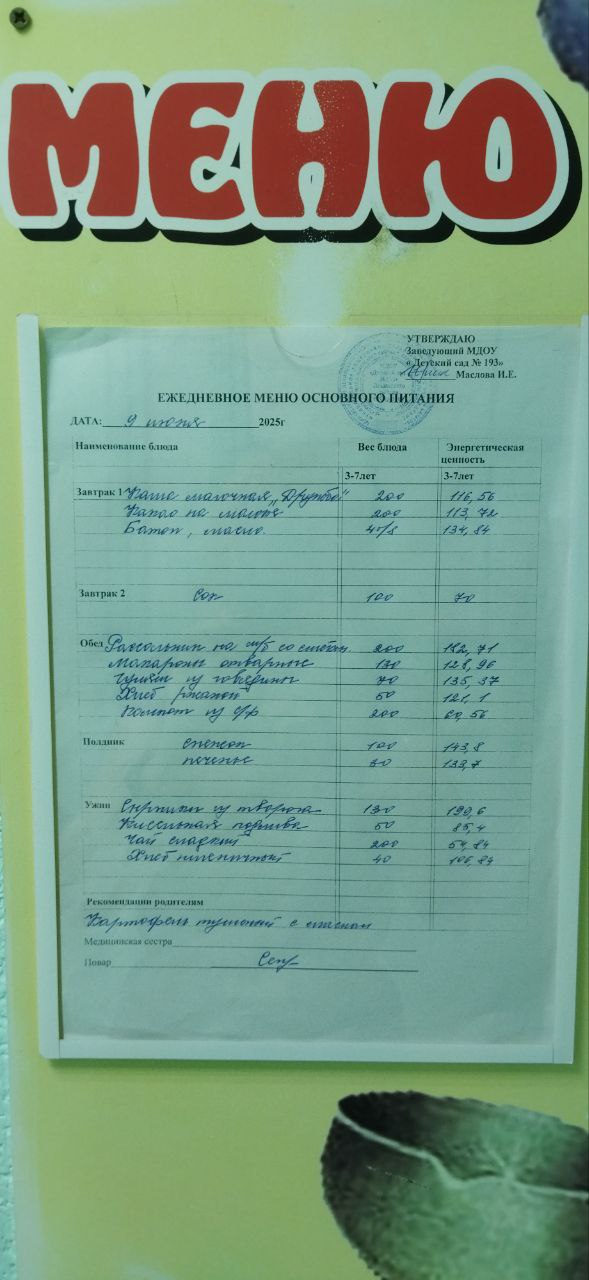 МЕНЮ
УТВЕРЖДАЮ
Заведующий МДОУ
« Детский сад № 193»
Маслова И.Е.
ЕЖЕДНЕВНОЕ МЕНЮ ОСНОВНОГО ПИТАНИЯ
ДАТА: 9 июня 2025г
Наименование блюда Вес блюда Энергетическая ценность
3-7лет 3-7лет
Завтрак 1 Каша молочная „Дружба" 200 116,56
Какао на молоке 200 113,72
Батон, масло. 134,84
Завтрак 2 Сок 100 70
Обед Рассольник на м/б со сметан. 200 71
Макароны отварные 130 128,96
Гуляш из говядины 70 135,37
Хлеб ржаной 50 121,1
Компот из с/ф 200 60,56
Полдник Снежок 100 143,8
печенье 133,7
Ужин Сырники из творога 130 190,6
Кисельная подлива 50 85,4
Чай сладкий 200 54,84
Хлеб пшеничный 40 106,84
Рекомендации родителям
Картофель тушеный с мясом
Медицинская сестра
Повар